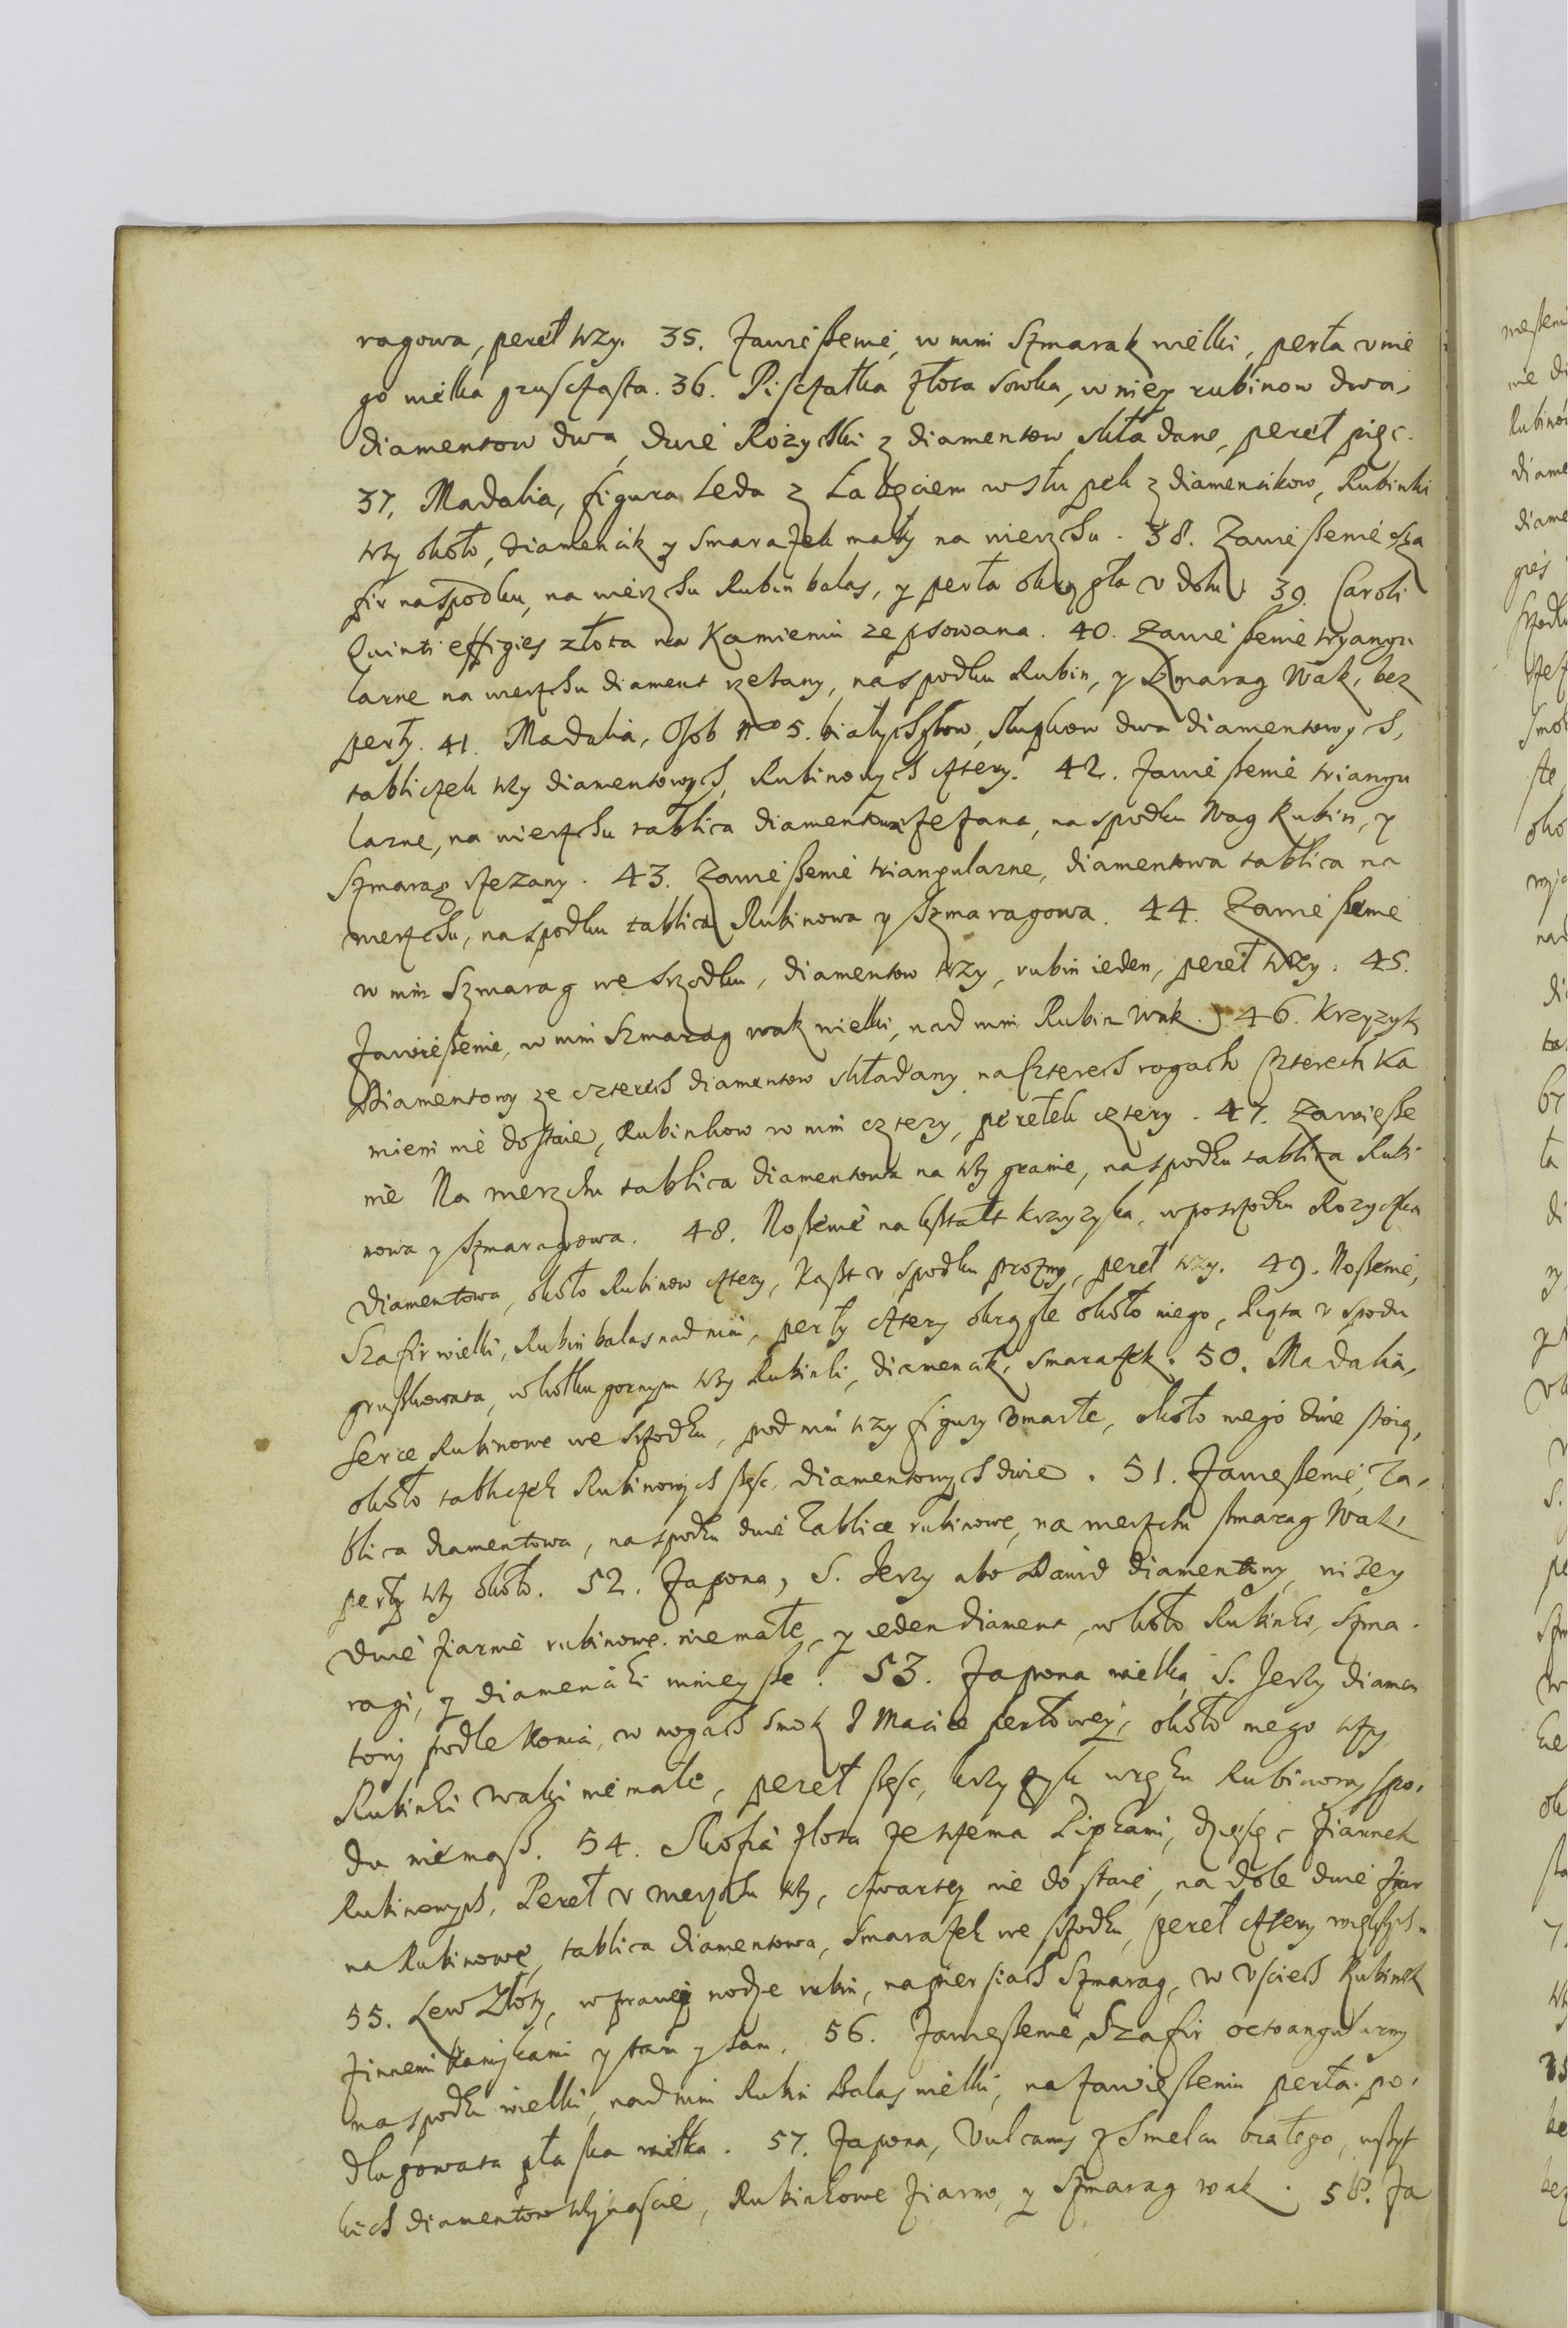 ragowa, pereł trzy. 35. Zawießenie, w nim Szmarak wielki, perła v nie
go wielka gruszczasta. 36. Piszczałka złota sowka, w niey rubinow dwa,
diamentow dwa, dwie Różyczki z diamentow składane, pereł pięc.
37. Madalia, figura Leda z Łabęciem w słupek z diamencikow, Rubinki
trzy około, diamencik y smarażek mały na wierzchu. 38. Zawießenie sza
fir na spodku, na wierzchu Rubin balas, y perła okrągła v dołu. 39. Caroli
Quinti effigies złota na Kamieniu zepsowana. 40. Zawießenie tryangu
larne na wierzchu diament rzezany, na spodku Rubin, y Szmarag Wak, bez
perły. 41. Madalia, Osob no 5. białychgłow, słupkow dwa diamentowych,
tabliczek trzy diamentowych, Rubinowych cztery. 42. Zawießenie triangu
larne, na wierzchu tablica diamentowa rzezana, na spodku Wag Rubin, y
Szmarag rzezany. 43. Zawießenie triangularne, diamentowa tablica na
wierzchu, na spodku tablica Rubinowa y szmaragowa. 44. Zawießenie
w nim Szmarag we srzodku, diamentow trzy, rubin ieden, pereł trzy. 45.
Zawießenie, w nim Szmarag wak wielki, nad nim Rubin Wak. 46. Krzyzyk
Diamentowy ze czterech diamentow składany na czterech rogach czterech Ka
mieni nie dostaie, Rubinkow w nim cztery, perełek cztery. 47. Zawieße
nie Na wierzchu tablica diamentowa na trzy granie, na spodku tablica Rubi
nowa y szmaragowa. 48. Noßenie na kßtałt krzyzyka, w posrzodku Rozyczka
Diamentowa, około Rubinow cztery, Kaßt v spodku prozny, pereł trzy. 49. Noßenie,
Szafir wielki, Rubin balas nad nim, perły cztery okrągłe około niego, Piąta v spodu
grußkowata, w kołku gornym trzy Rubinki, diamencik, smarażek. 50. Madalia,
Serce Rubinowe we srzodku, pod nim trzy figury Vmarłe, około niego dwie stoią,
około tabliczek Rubinowych ßesc, diamentowych dwie. 51. Zawießenie, Ta,
blica diamentowa, na spodku dwie tablice rubinowe, na wierzchu smarag Wak,
perły trzy około. 52. Zapona, S. Jerzy abo Dawid diamentowy, nizey
dwie ziarnie rubinowe niemałe, y ieden diament, w koło Rubinki, Szma.
ragi, y diamenciki mnieysze. 53. Zapona wielka, S. Jerzy diamen
towy podle Konia, w nogach smok z Macice perłowey, około niego trzy
Rubinki waki niemałe, pereł ßesc, krzyzyk w ręku Rubinowy spo,
du niemaß. 54. Skofia złota ze trzema Pipkami, dziesięc ziarnek
Rubinowych, Pereł v wierzchu trzy, czwartey nie dostaie, na dole dwie ziar
na Rubinowe, tablica diamentowa, smarażek we srzodku, pereł cztery większych.
55. Lew Złoty, w prawey nodze rubin, na piersiach Szmarag, w vsciech Rubinek
z innemi Kamykami y tam y sam. 56. Zawießenie Szafir octoangularny
na spodku wielki, nad nim Rubin Balas wielki, na zawießeniu perła po,
dlugowata płaska wielka. 57. Zapona, Vulcanus z Smelcu białego, wßyt
kich diamentow trzynascie, Rubinkowe ziarno, y Szmarag wak. 58. Za